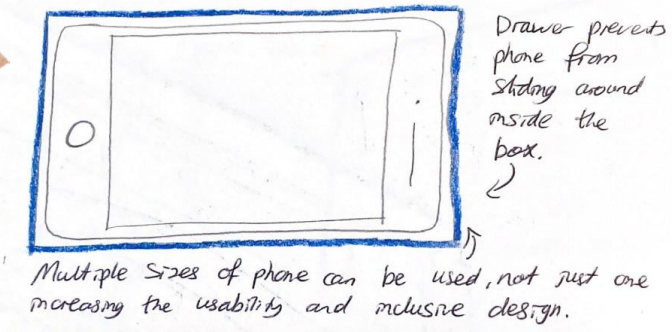 Drawer prevents
phone from
sliding around
inside the
box.
Multiple sizes of phone can be used, not just one
increasing the usability and inclusive design.